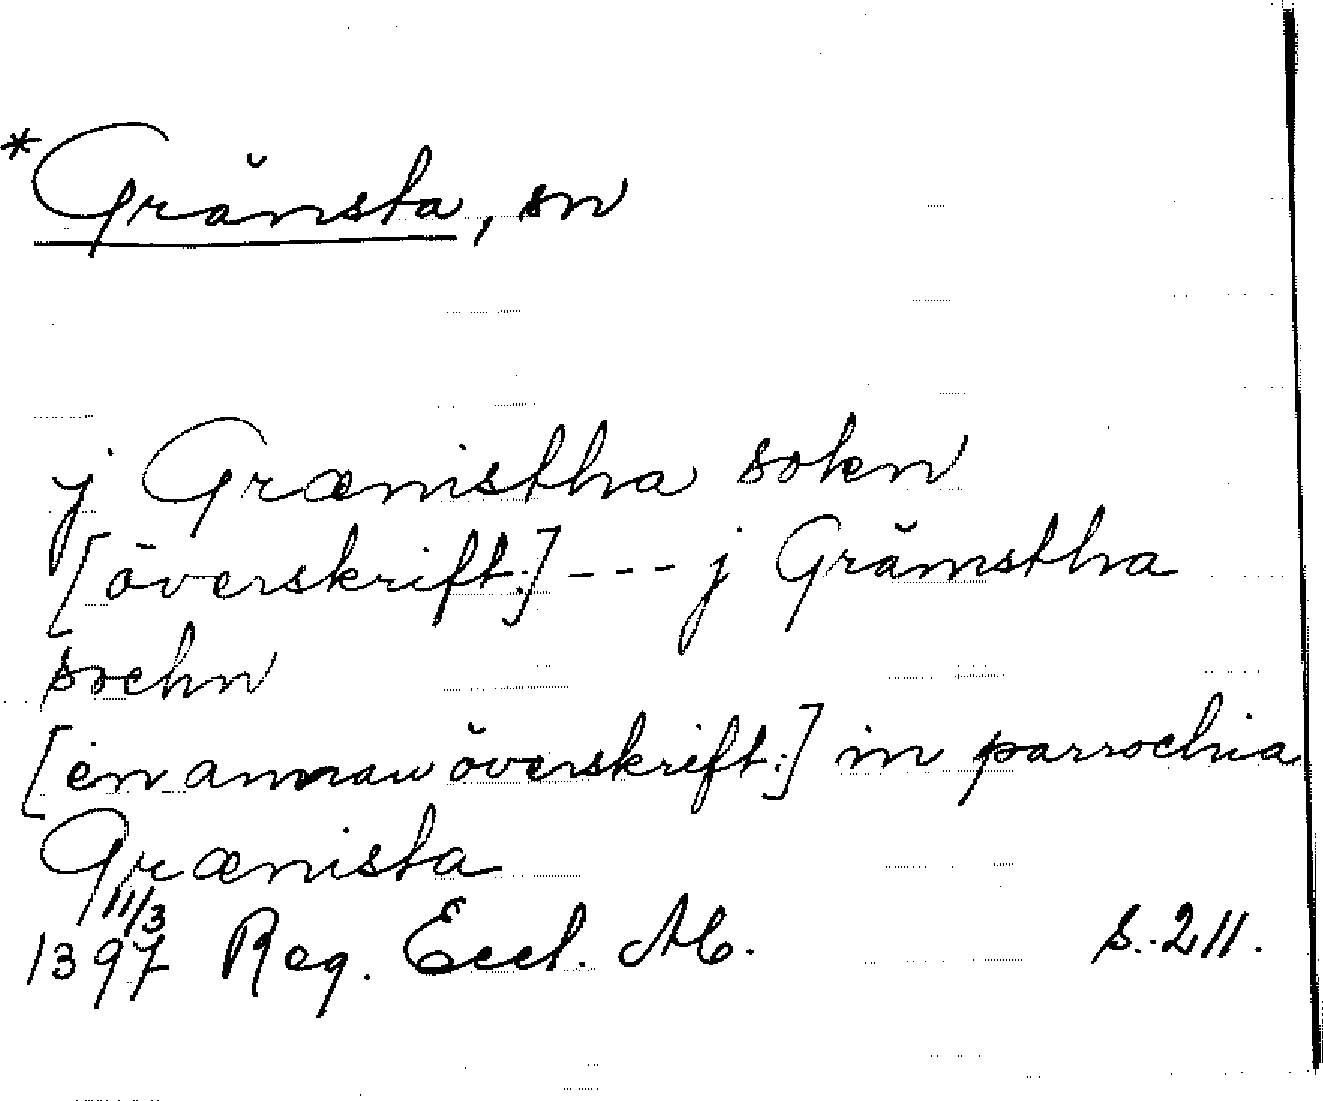 *Grämsta, sn
j Græmistha sokn
[överskrift:] --- j Grämstha
sochn
[en annan överskrift:] in parrochia
Græmista
11/3
1397 Reg. Eccl. s. 211.